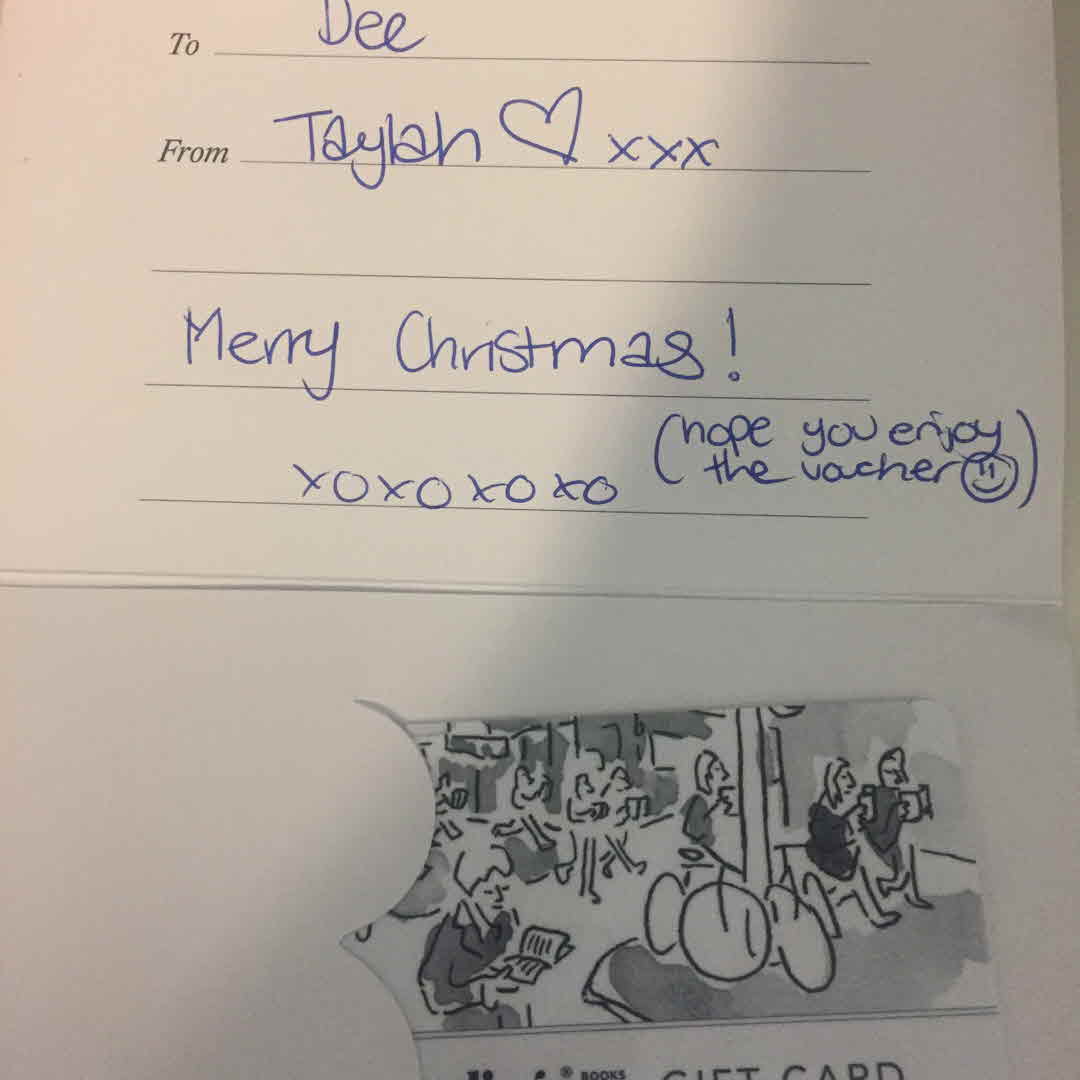 To Dee
From Taylah ♡ xxx
Merry Christmas!
xoxoxoxo
(hope you enjoy
the vocher ☺)
® BOOKS GIFT CARD